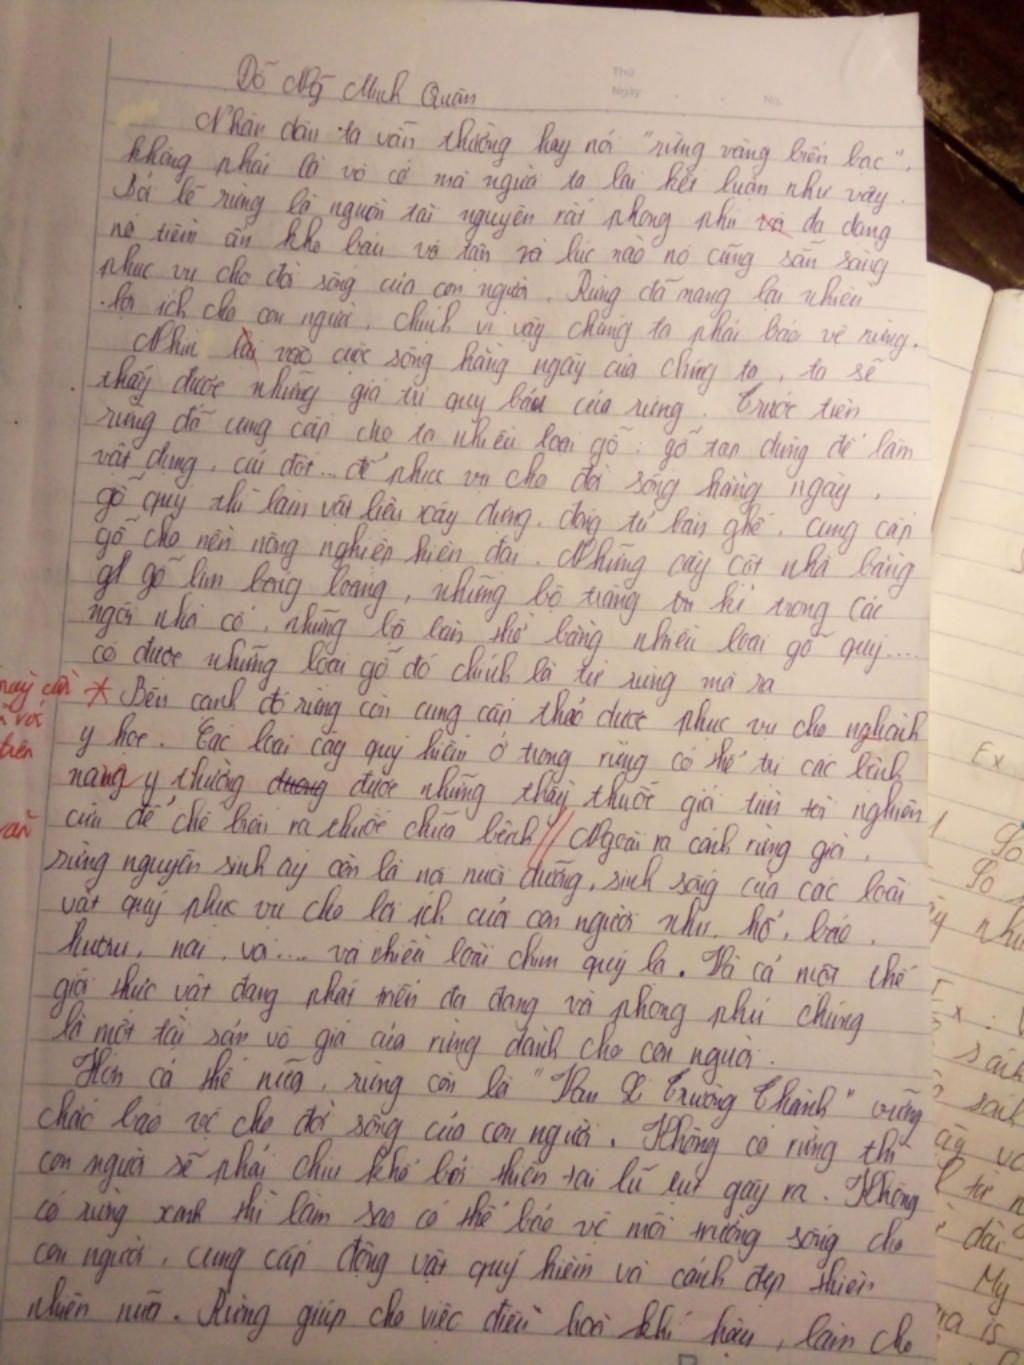 Đỗ Mỹ Minh Quân
Thứ
Ngày No.
Nhân dân ta vẫn thường hay nói "rừng vàng biển bạc".
không phải là vô cớ mà người ta lại kết luận như vậy.
Bởi lẽ rừng là nguồn tài nguyên rất phong phú và đa dạng
nó tiềm ẩn kho báu vô tận và lúc nào nó cũng sẵn sàng
phục vụ cho đời sống của con người. Rừng đã mang lại nhiều
lợi ích cho con người, chính vì vậy chúng ta phải bảo vệ rừng.
Nhìn lại vào cuộc sống hàng ngày của chúng ta, ta sẽ
thấy được những giá trị quý báu của rừng. Trước tiên
rừng đã cung cấp cho ta nhiều loại gỗ: gỗ tạp dùng để làm
vật dụng, củi đốt... để phục vụ cho đời sống hàng ngày,
gỗ quý thì làm vật liệu xây dựng, đóng tủ bàn ghế, cung cấp
gỗ cho nền nông nghiệp hiện đại. Những cây cột nhà bằng
gỗ lim bóng loáng, những bộ tràng kỉ trong các
ngôi nhà cổ, những bộ bàn thờ bằng nhiều loại gỗ quý....
có được những loại gỗ đó chính là từ rừng mà ra
* Bên cạnh đó rừng còn cung cấp thảo dược phục vụ cho nghành
y học. Các loại cây quý hiếm ở trong rừng có thể trị các bệnh
nan y thường được những thầy thuốc giỏi tìm tòi nghiên
cứu để chế biến ra thuốc chữa bệnh // Ngoài ra cánh rừng già,
rừng nguyên sinh ấy còn là nơi nuôi dưỡng, sinh sống của các loài
vật quý phục vụ cho lợi ích của con người như hổ, báo,
hươu, nai, voi.... và nhiều loài chim quý lạ. Và cả một thế
giới thực vật đang phát triển đa dạng và phong phú chúng
là một tài sản vô giá của rừng dành cho con người.
Hơn cả thế nữa, rừng còn là "Vạn Lí Trường Thành" vững
chắc bảo vệ cho đời sống của con người. Không có rừng thì
con người sẽ phải chịu khổ bởi thiên tai lũ lụt gây ra. Không
có rừng xanh thì làm sao có thể bảo vệ môi trường sống cho
con người, cung cấp động vật quý hiếm và cảnh đẹp thiên
nhiên nữa. Rừng giúp cho việc điều hoà khí hậu, làm cho
Ex
My